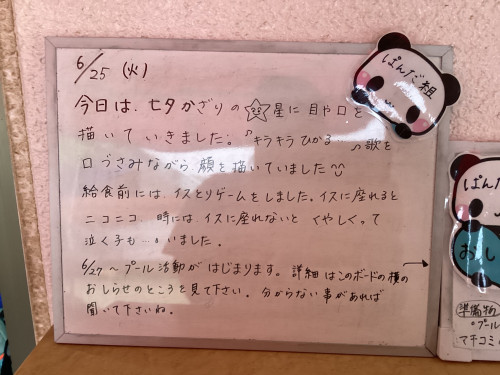 6/25 (火)
今日は、七夕かざりの 星に 目や口を
描いて いきました。♪キラキラ ひかる…♪歌を
口づさみながら 顔を 描いていました
給食前には、イスとりゲームをしました。イスに座れると
ニコニコ 時には、イスに座れないと くやしくって
泣く子も…いました。
6/27〜プール活動が はじまります。詳細はこのボードの横の
おしらせのところを見て下さい。分からない事があれば
聞いて下さいね。
ぱんだ組
ぱんだ
おし
準備物
プール